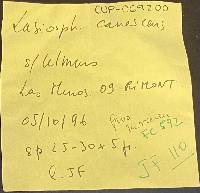 CUP-009200
Lasiosph. canescens
s/ Ulmus
Las Muros 09 RIMONT
05/10/96
FC 592
sp 25-30 x 5 µ.
JF 110